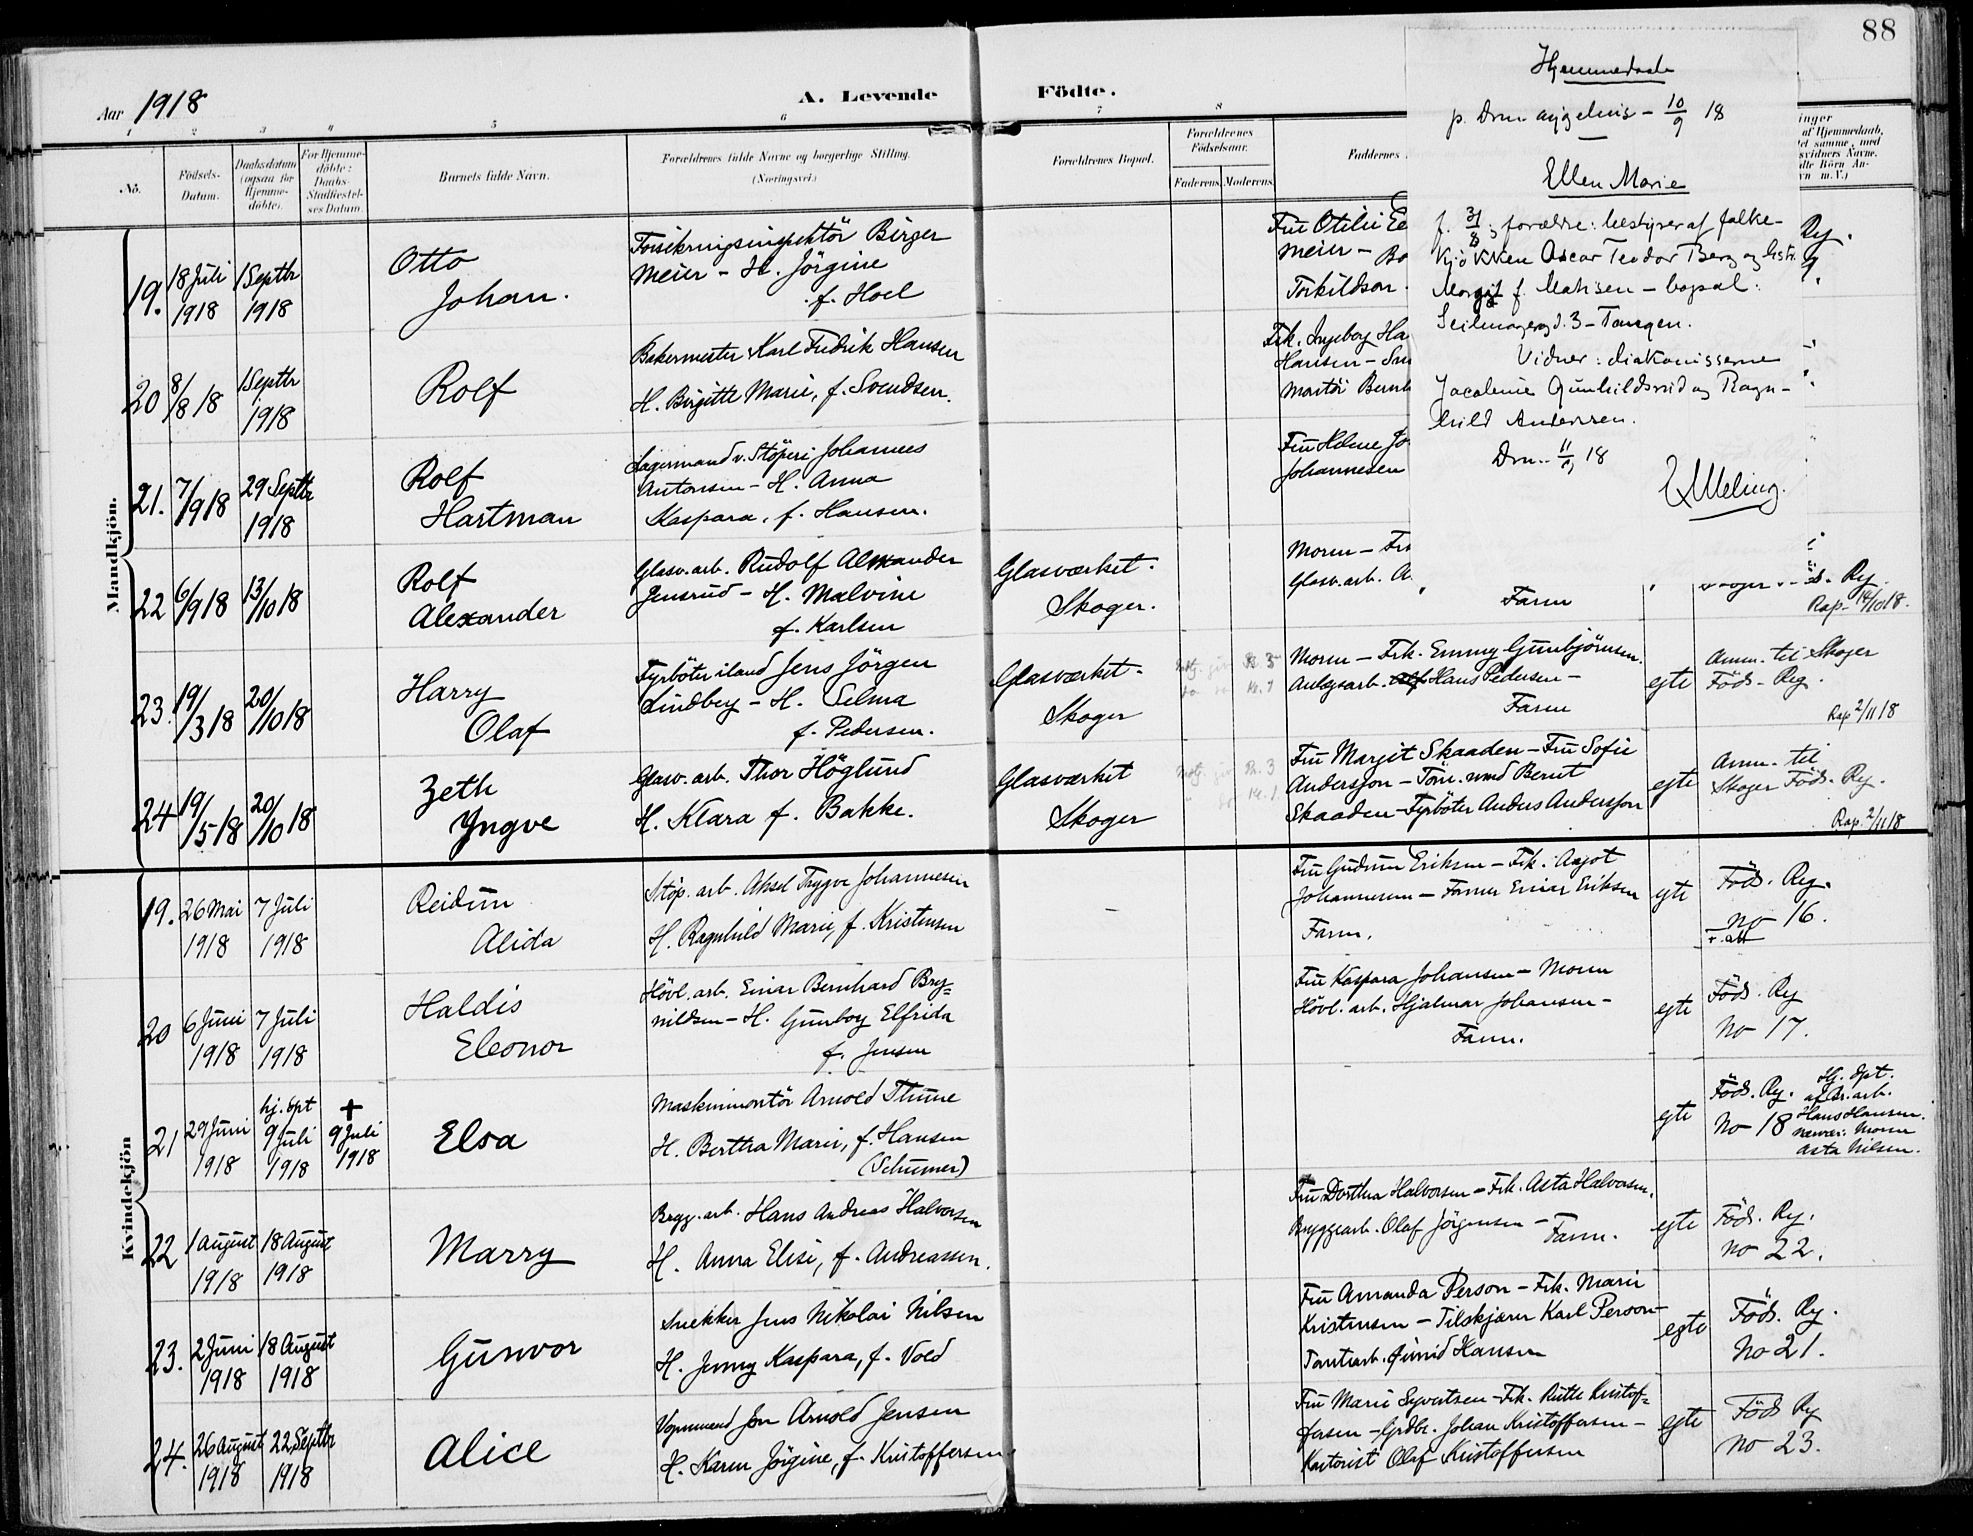 88
Aar 1918
A. Levende
Födte.
1 2 3 4 5 6 7 8
No.
Födsels-Datum.
Daabsdatum (ogsaa for Hjemme-döbte).
For Hjemme-döbte: Daabs-Stadfæstel-ses Datum.
Barnets fulde Navn.
Forældrenes fulde Navne og borgerlige Stilling. (Næringsvei.)
Forældrenes Bopæl.
Forældrenes Födselsaar.
Faderens. Moderens.
Faddernes
Hjemmedaab
p. Drm sygehus - 10/9 18
Ellen Marie
f. 31/8; forældre: bestyrer af folke-
kjøkken Oscar Teodor Berg og hstr.
Margit f. Mathisen - bopæl:
Seilmagergd. 3 - Tangen.
Vidner: diakonisserne
Jacobine Gunhildsrud og Ragn-
hild Andersen.
Drm. 11/9 18
Meling.
Mandkjön.
19. 18 Juli 1918
1 Septbr 1918
Otto
Johan.
Forsikringsinspektör Birger
Meier - H. Jörgine
f. Hoel
Fru Otilie
Meier -
Torkildson.
20 8/8 18
1 Septbr 1918
Rolf
Bakermester Karl Fredrik Hansen
H. Birgitte Marie, f. Svendsen.
Frk. Ingeborg Ha
Hansen -
21. 7/9 18
29 Septbr 1918
Rolf
Hartman
Lagermand v. Stöperi Johannes
Antonsen - H. Anna
Kaspara, f. Hansen.
Johannesen
22 6/9 18
13/10 18
Rolf
Alexander
Glasv. arb. Rudolf Alexander
Jensrud - H. Malvine
f. Karlsen
Glasværket.
Skoger.
Moren -
Glasv. arb. A.
Faren
Rap. 14/10 18.
23. 19/3 18
20/10 18
Harry
Olaf
Fyrböter iland Jens Jörgen
Lindberg - H. Selma
f. Pedersen.
Glasværket -
Skoger
Moren - Frk. Emmy Gunbjörnsen.
Anlegsarb. Hans Pedersen -
Faren
egte
Anm. til Skoger
Föds. Reg.
Rap 2/11 18
24 19/5 18
20/10 18
Zeth
Yngve
Glasv. arb. Thor Höglund
H. Klara f. Bakke.
Glasværket
Skoger
Fru Margit Skaaden - Fru Sofie
Andersson - Tom. mand Bernt
Skaaden - Fyrböter Anders Andersson
egte
Anm. til
Skoger Föds. Reg.
Rap. 2/11 18
Kvindekjön
19. 26 Mai 1918
7 Juli 1918
Reidun
Alida
Stöp. arb. Aksel Trygve Johannesen
H. Ragnhild Marie, f. Kristensen
Fru Gudrun Eriksen - Frk. Aagot
Johannesen - Former Einar Eriksen
Faren.
egte
Föds. Reg.
No 16.
20 6 Juni 1918
7 Juli 1918
Haldis
Eleonor
Hövl. arb. Einar Bernhard Bry=
nildsen - H. Gunborg Elfrida
f. Jensen
Fru Kaspara Johansen - Moren
Hövl. arb. Hjalmar Johansen -
Faren.
egte
Föds. Reg
No 17.
21 29 Juni 1918
hj. dpt 9 Juli 1918
+ 9 Juli 1918
Elsa
Maskinmontör Arnold Thune
H. Berttha Marie, f. Hansen
(Schumer)
egte
Föds. Reg.
No 18
Hj. dpt.
af Br. arb.
Hans Hansen.
nærvær: Moren
Asta Nilsen.
22 1 August 1918
18 August 1918
Marry
Brygg. arb. Hans Andreas Halvorsen
H. Anna Elise, f. Andreassen.
Fru Dorthea Halvorsen - Frk. Asta Halvorsen.
Bryggearb. Olaf Jörgensen -
Faren.
egte
Föds. Reg.
No 22.
23. 2 Juni 1918
18 August 1918
Gunvor
Snekker Jens Nikolai Nilsen
H. Jenny Kaspara, f. Vold
Fru Amanda Person - Frk. Marie
Kristensen - Tilskjærer Karl Person -
Tomtearb. Hansen
egte
Föds. Reg.
No 21.
24. 26 August 1918
22 Septbr 1918
Alice
Vognmand Jon Arnold Jensen
H. Karen Jörgine, f. Kristoffersen
Fru Marie Syvertsen - Frk. Ruth Kristof=
fersen - Grdbr. Johan Kristoffersen -
Kontorist Olaf Kristoffersen
egte
Föds Reg
No 23.